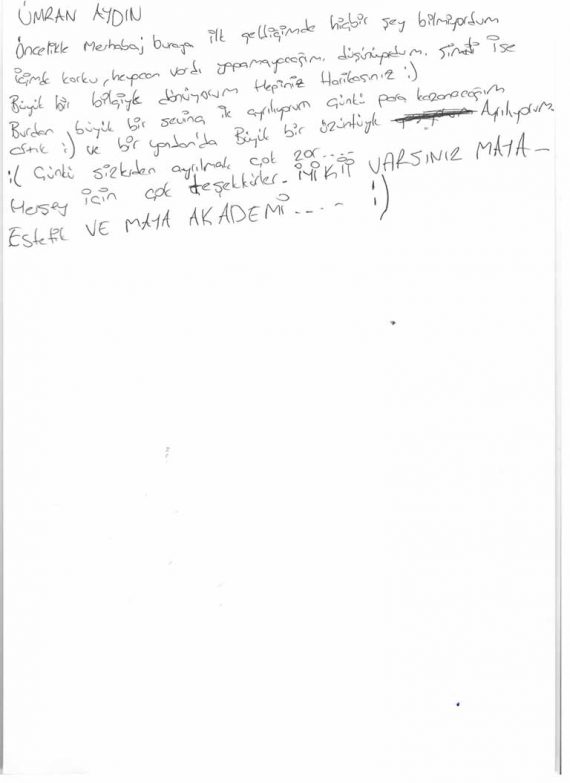 ÜMRAN AYDIN
Öncelikle Merhaba; buraya ilk geldiğimde hiçbir şey bilmiyordum
içimde korku, heycan vardı yapamayacağım, düşünüyodum. Şimdi ise
Büyük bir bilgiyle dönüyorum Hepiniz Harikasınız :)
Burdan büyük bir sevinç ik ayrılıyorum Çünkü para kazanacağım
artık :) ve bir yandan'da Büyük bir üzüntüyle Ayrılıyorum.
:( Çünkü sizlerden ayrılmak çok zor....
Herşey için çok teşekkürler. iyi Kii VARSINIZ MAYA -
Estetik VE MAYA AKADEMİ.... :)